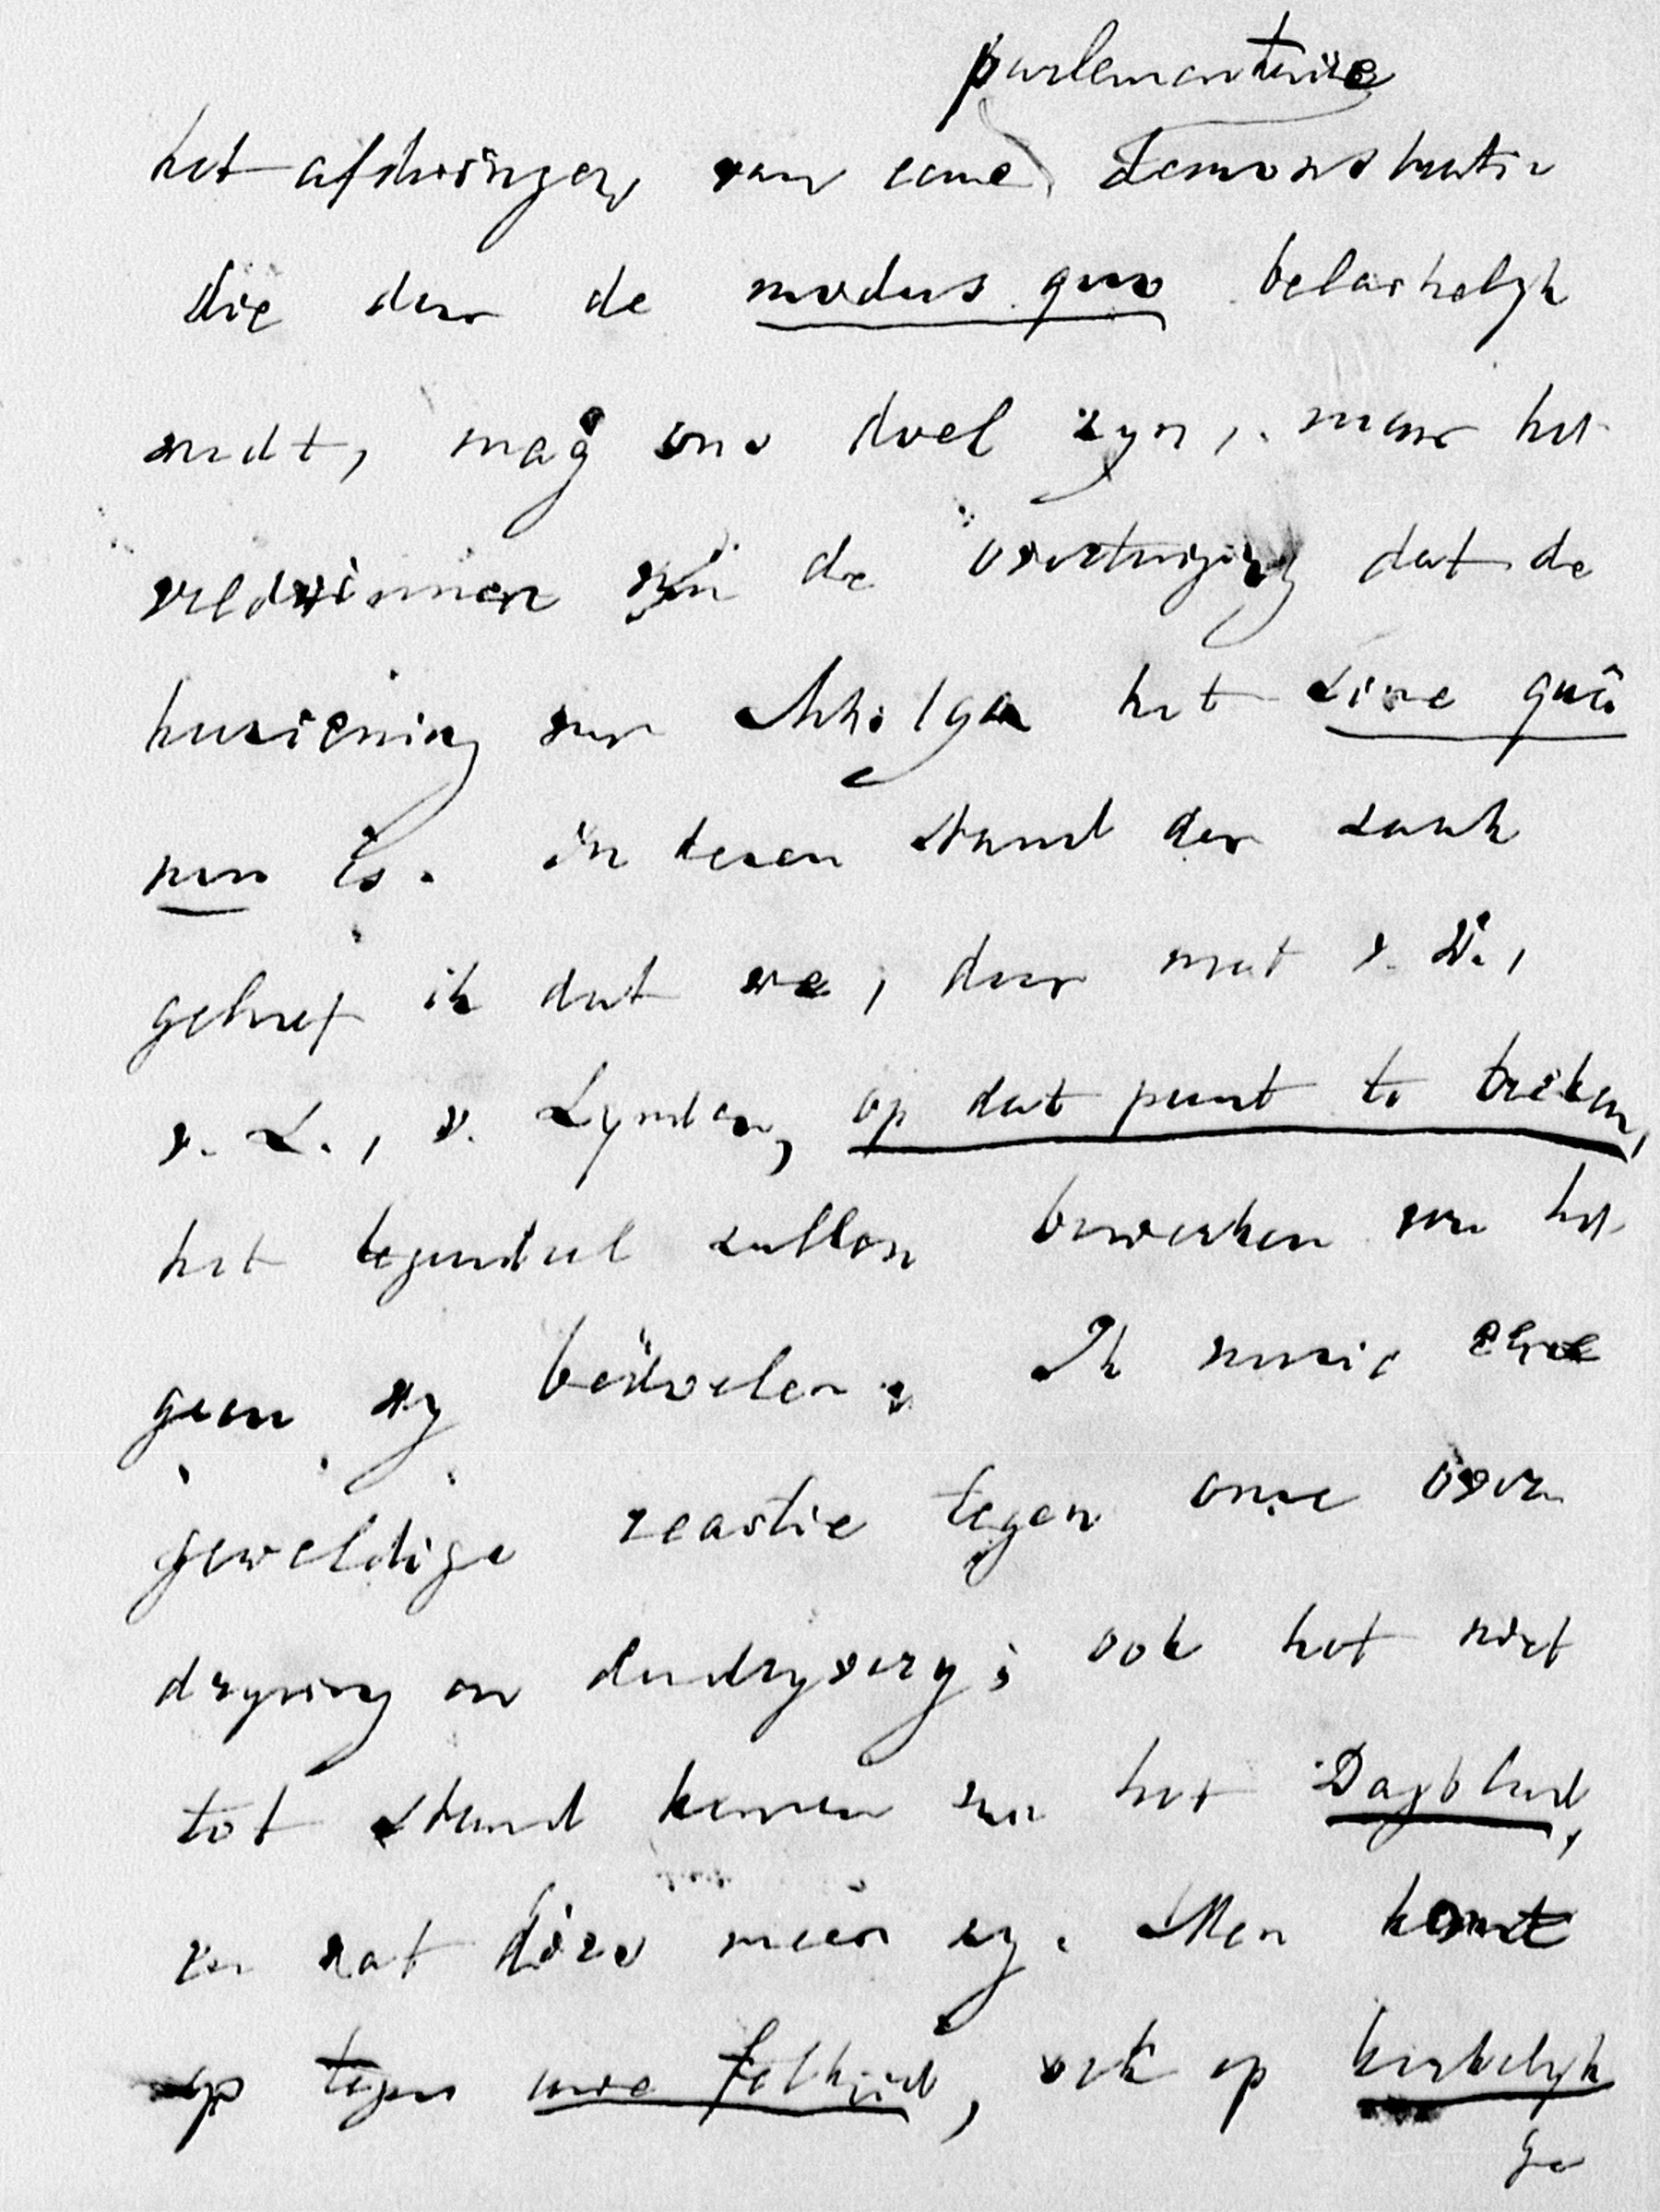 parlementaire
het afdwingen van eene demonstratie
die door de modus quo belachelyk
wordt, mag ons doel zyn, maar het
veldwinnen van de overtuiging dat de
herziening van Art. 194 het sine quâ
non is. In dezen stand der zaak
geloof ik dat we, door met v. W.,
v. L., v. Lynden, op dat punt te breken,
het tegendeel zullen bewerken van het
geen wy bedoelen. Ik vrees eene
geweldige reactie tegen onze over
dryving en doordryvery; ook het niet
tot stand komen van het Dagblad,
en wat dies meer zy. Men komt
op tegen uwe felheid, ook op kerkelyk
ge